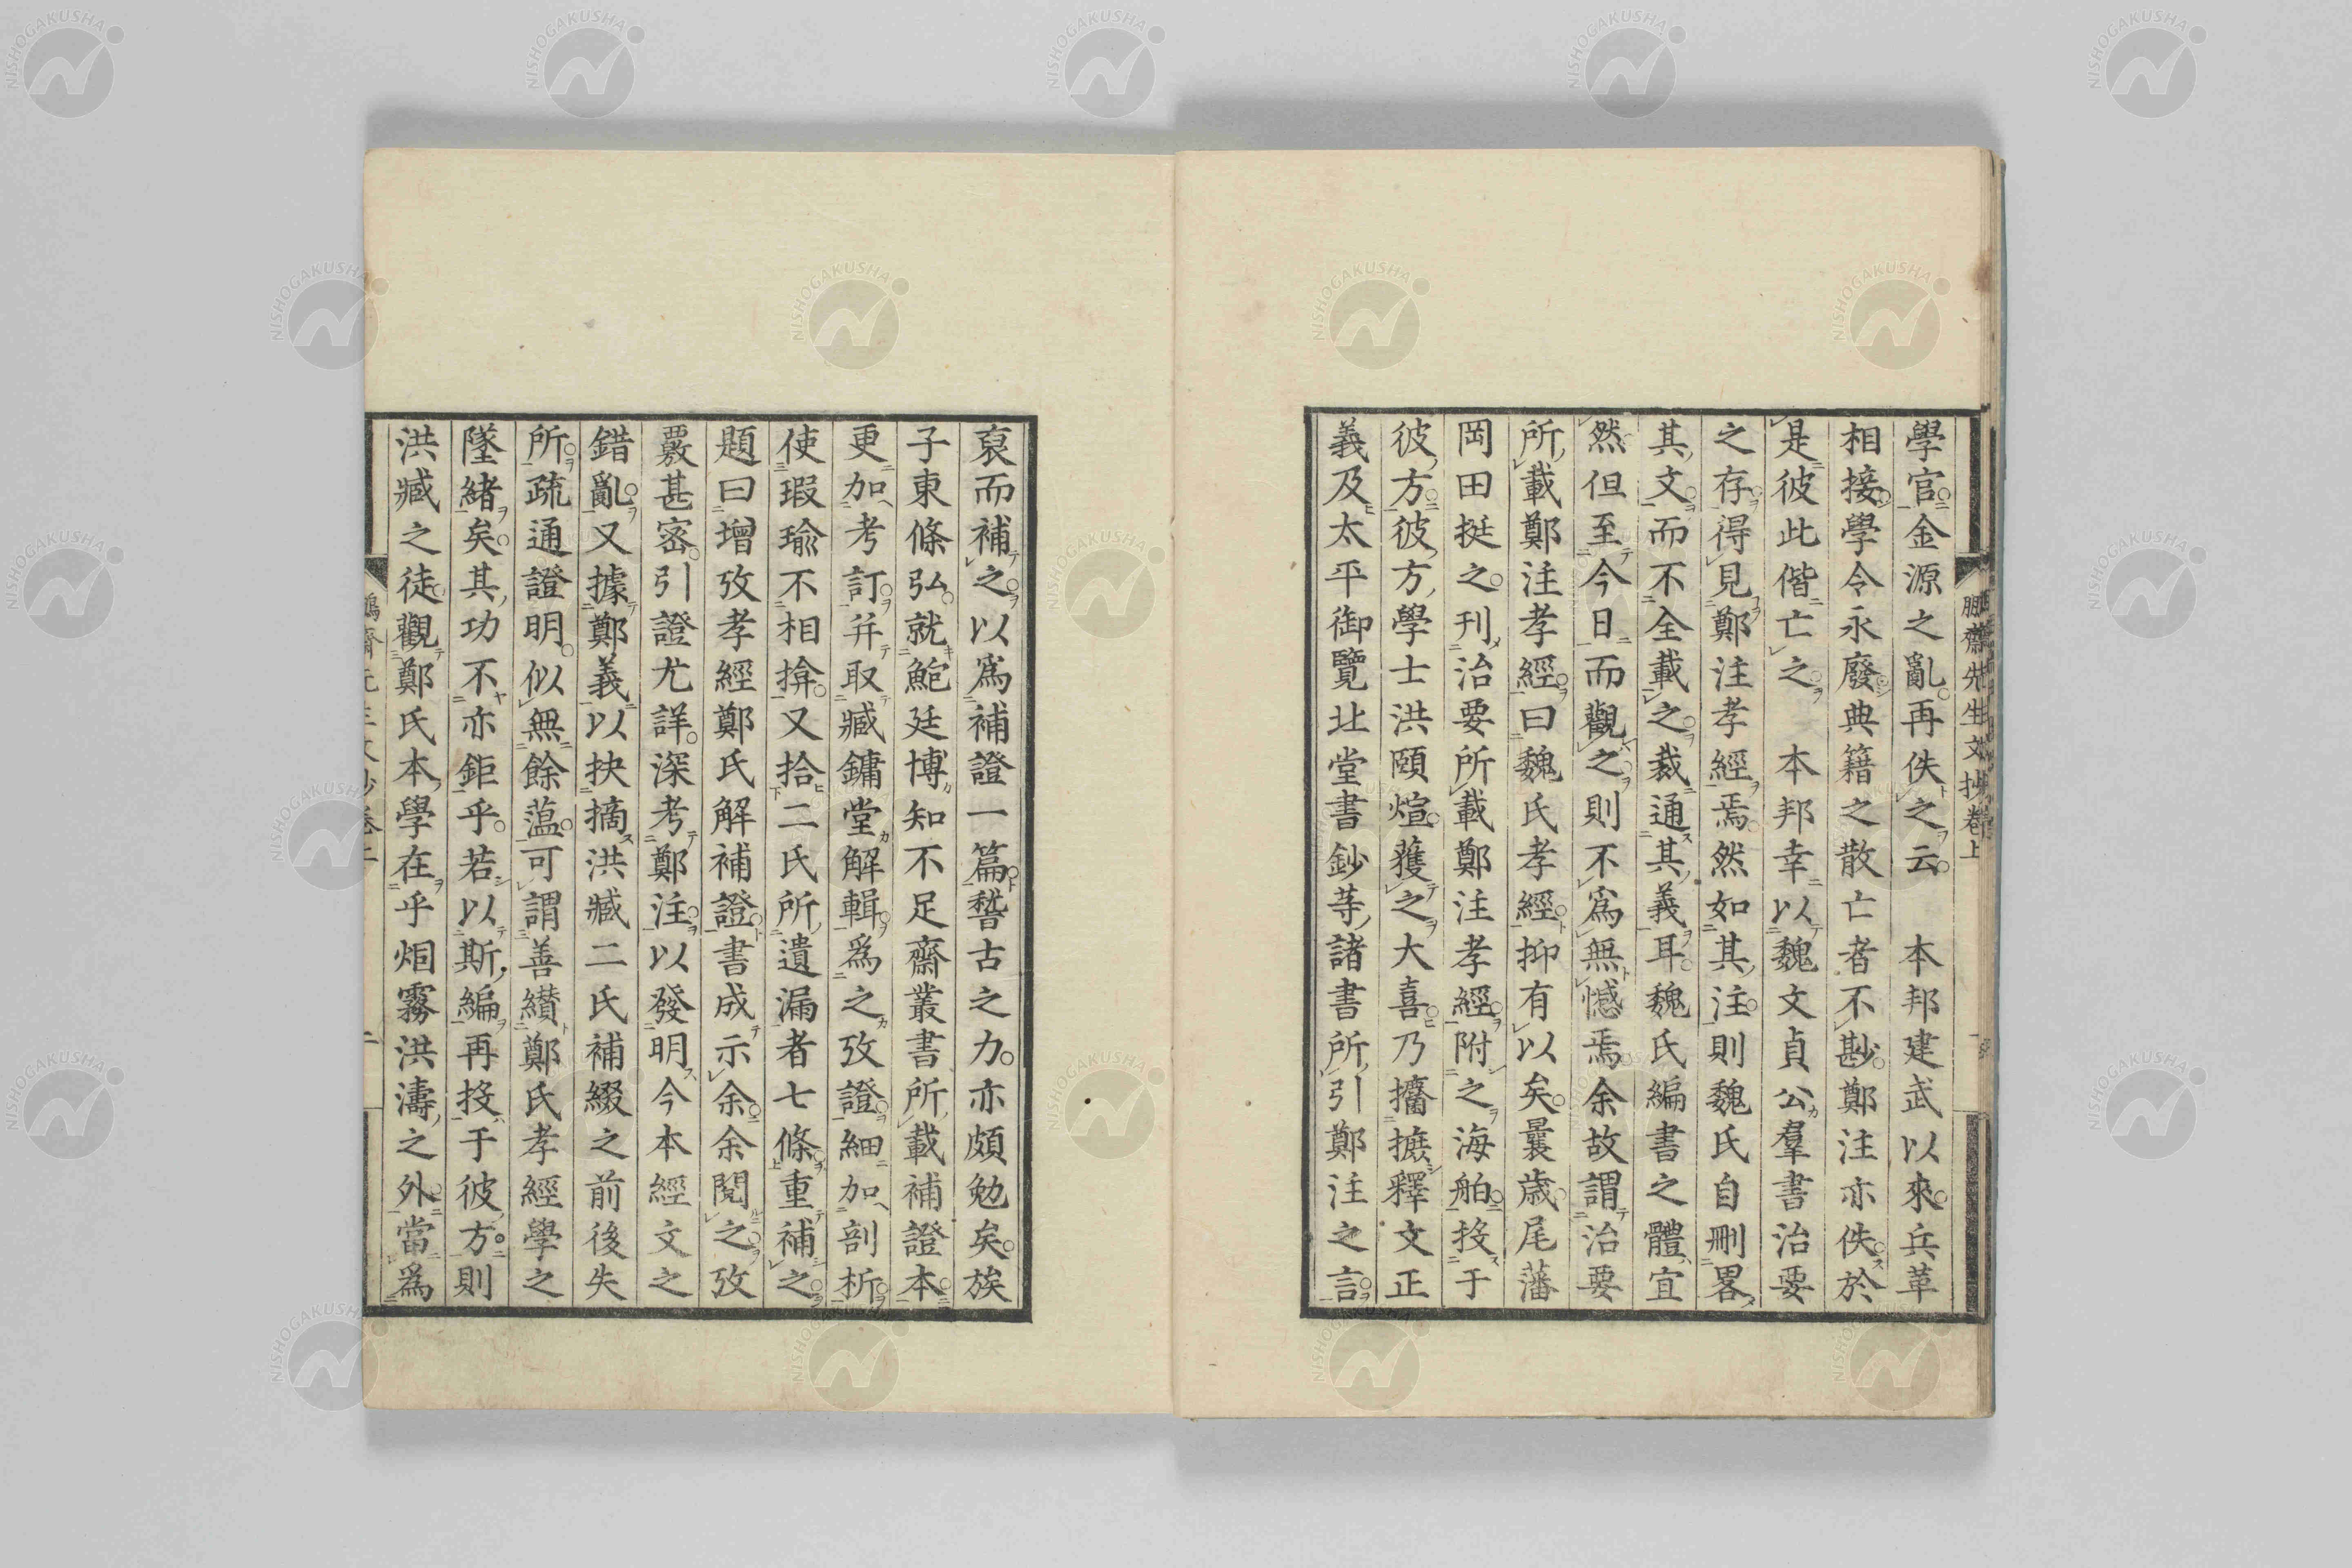 學官金源之亂再佚之云　本邦建武以來兵革
相接學令永廢典籍之散亡者不尠鄭注亦佚於
是彼此偕亡之　本邦幸以魏文貞公羣書治要
之存得見鄭注孝經焉然如其注則魏氏自刪畧
其文而不全載之裁通其義耳魏氏編書之體宜
然但至今日而觀之則不爲無憾焉余故謂治要
所載鄭注孝經曰魏氏孝經抑有以矣曩歲尾藩
岡田挺之刊治要所載鄭注孝經附之海舶投于
彼方彼方學士洪頤煊獲之大喜乃攟摭釋文正
義及太平御覽北堂書鈔等諸書所引鄭注之言
鵬齋先生文抄卷上
裒而補之以爲補證一篇稽古之力亦頗勉矣族
子東條弘就鮑廷博知不足齋叢書所載補證本
更加考訂并取臧鏞堂解輯爲之攷證細加剖析
使瑕瑜不相揜又拾二氏所遺漏者七條重補之
題曰增攷孝經鄭氏解補證書成示余余閱之攷
覈甚密引證尤詳深考鄭注以發明今本經文之
錯亂又據鄭義以抉摘洪臧二氏補綴之前後失
所疏通證明似無餘薀可謂善纘鄭氏孝經學之
墜緒矣其功不亦鉅乎若以斯編再投于彼方則
洪臧之徒觀鄭氏本學在乎烟霧洪濤之外當爲